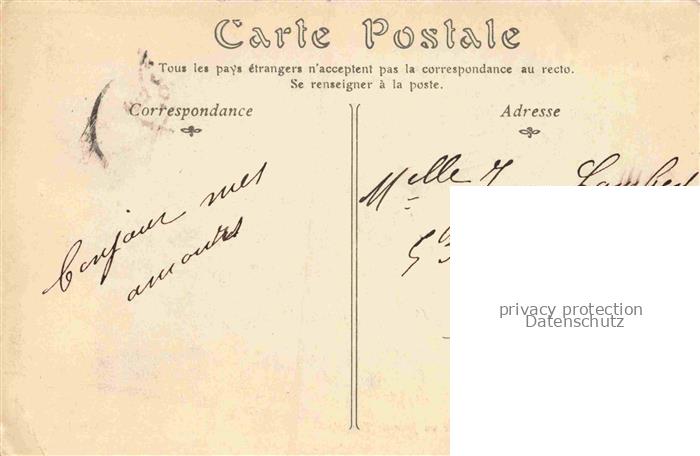 Carte Postale
Tous les pays étrangers n'acceptent pas la correspondance au recto.
Se renseigner à la poste.
Correspondance
Adresse
Bonjour mes
amours
Melle J Lambert
privacy protection
Datenschutz